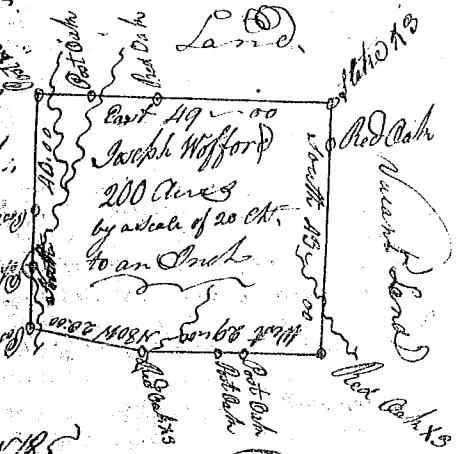 Land.
Post Oak
Red Oak
Stake X3
East 49 - 00
Joseph Wofford
200 Acres
by a scale of 20 Ch.
to an Inch
40.00
South 43 - 00
Red Oak
Vacant Land
N80W 20.00
West 29.00
Red Oak X3
Post Oak
Post Oak
Red Oak X3